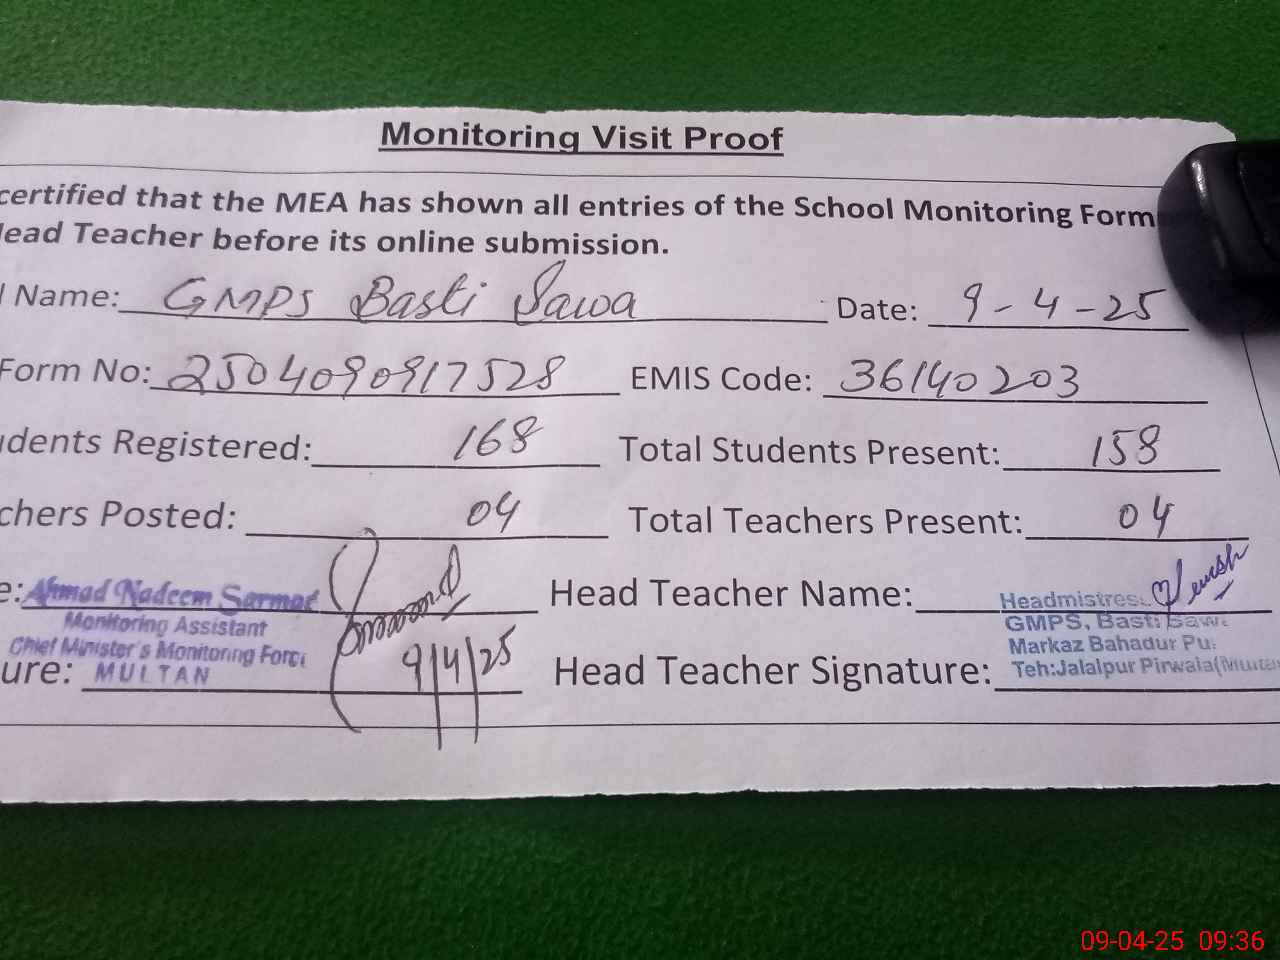 Monitoring Visit Proof
certified that the MEA has shown all entries of the School Monitoring Form
Head Teacher before its online submission.
l Name: GMPS Basti Sawa Date: 9-4-25
Form No: 2504090917528 EMIS Code: 36140203
udents Registered: 168 Total Students Present: 158
chers Posted: 04 Total Teachers Present: 04
e: Ahmad Nadeem Sarmad Head Teacher Name:
Monitoring Assistant
Chief Minister's Monitoring Force
MULTAN
ure: 9/4/25 Head Teacher Signature:
Headmistress
GMPS, Basti Sawa
Markaz Bahadur Pu
Teh:Jalalpur Pirwala(Multan
09-04-25 09:36